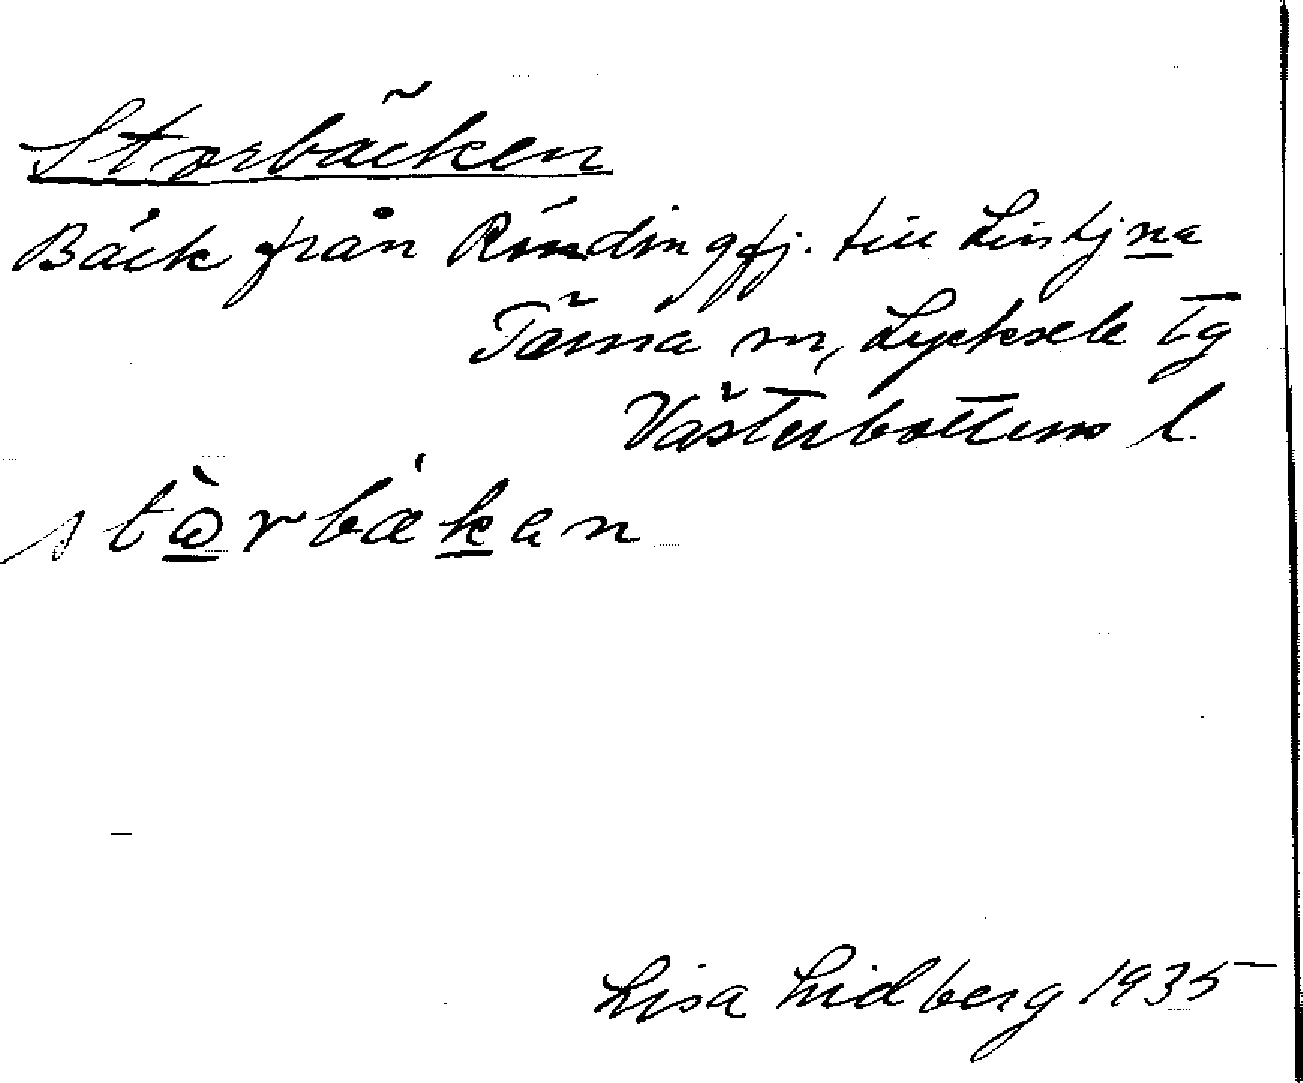 Storbäcken
Bäck från Rindingfj. till
Tärna sn, Lycksele tg
Västerbottens l.
stòrbækan
Lisa Lidberg 1935